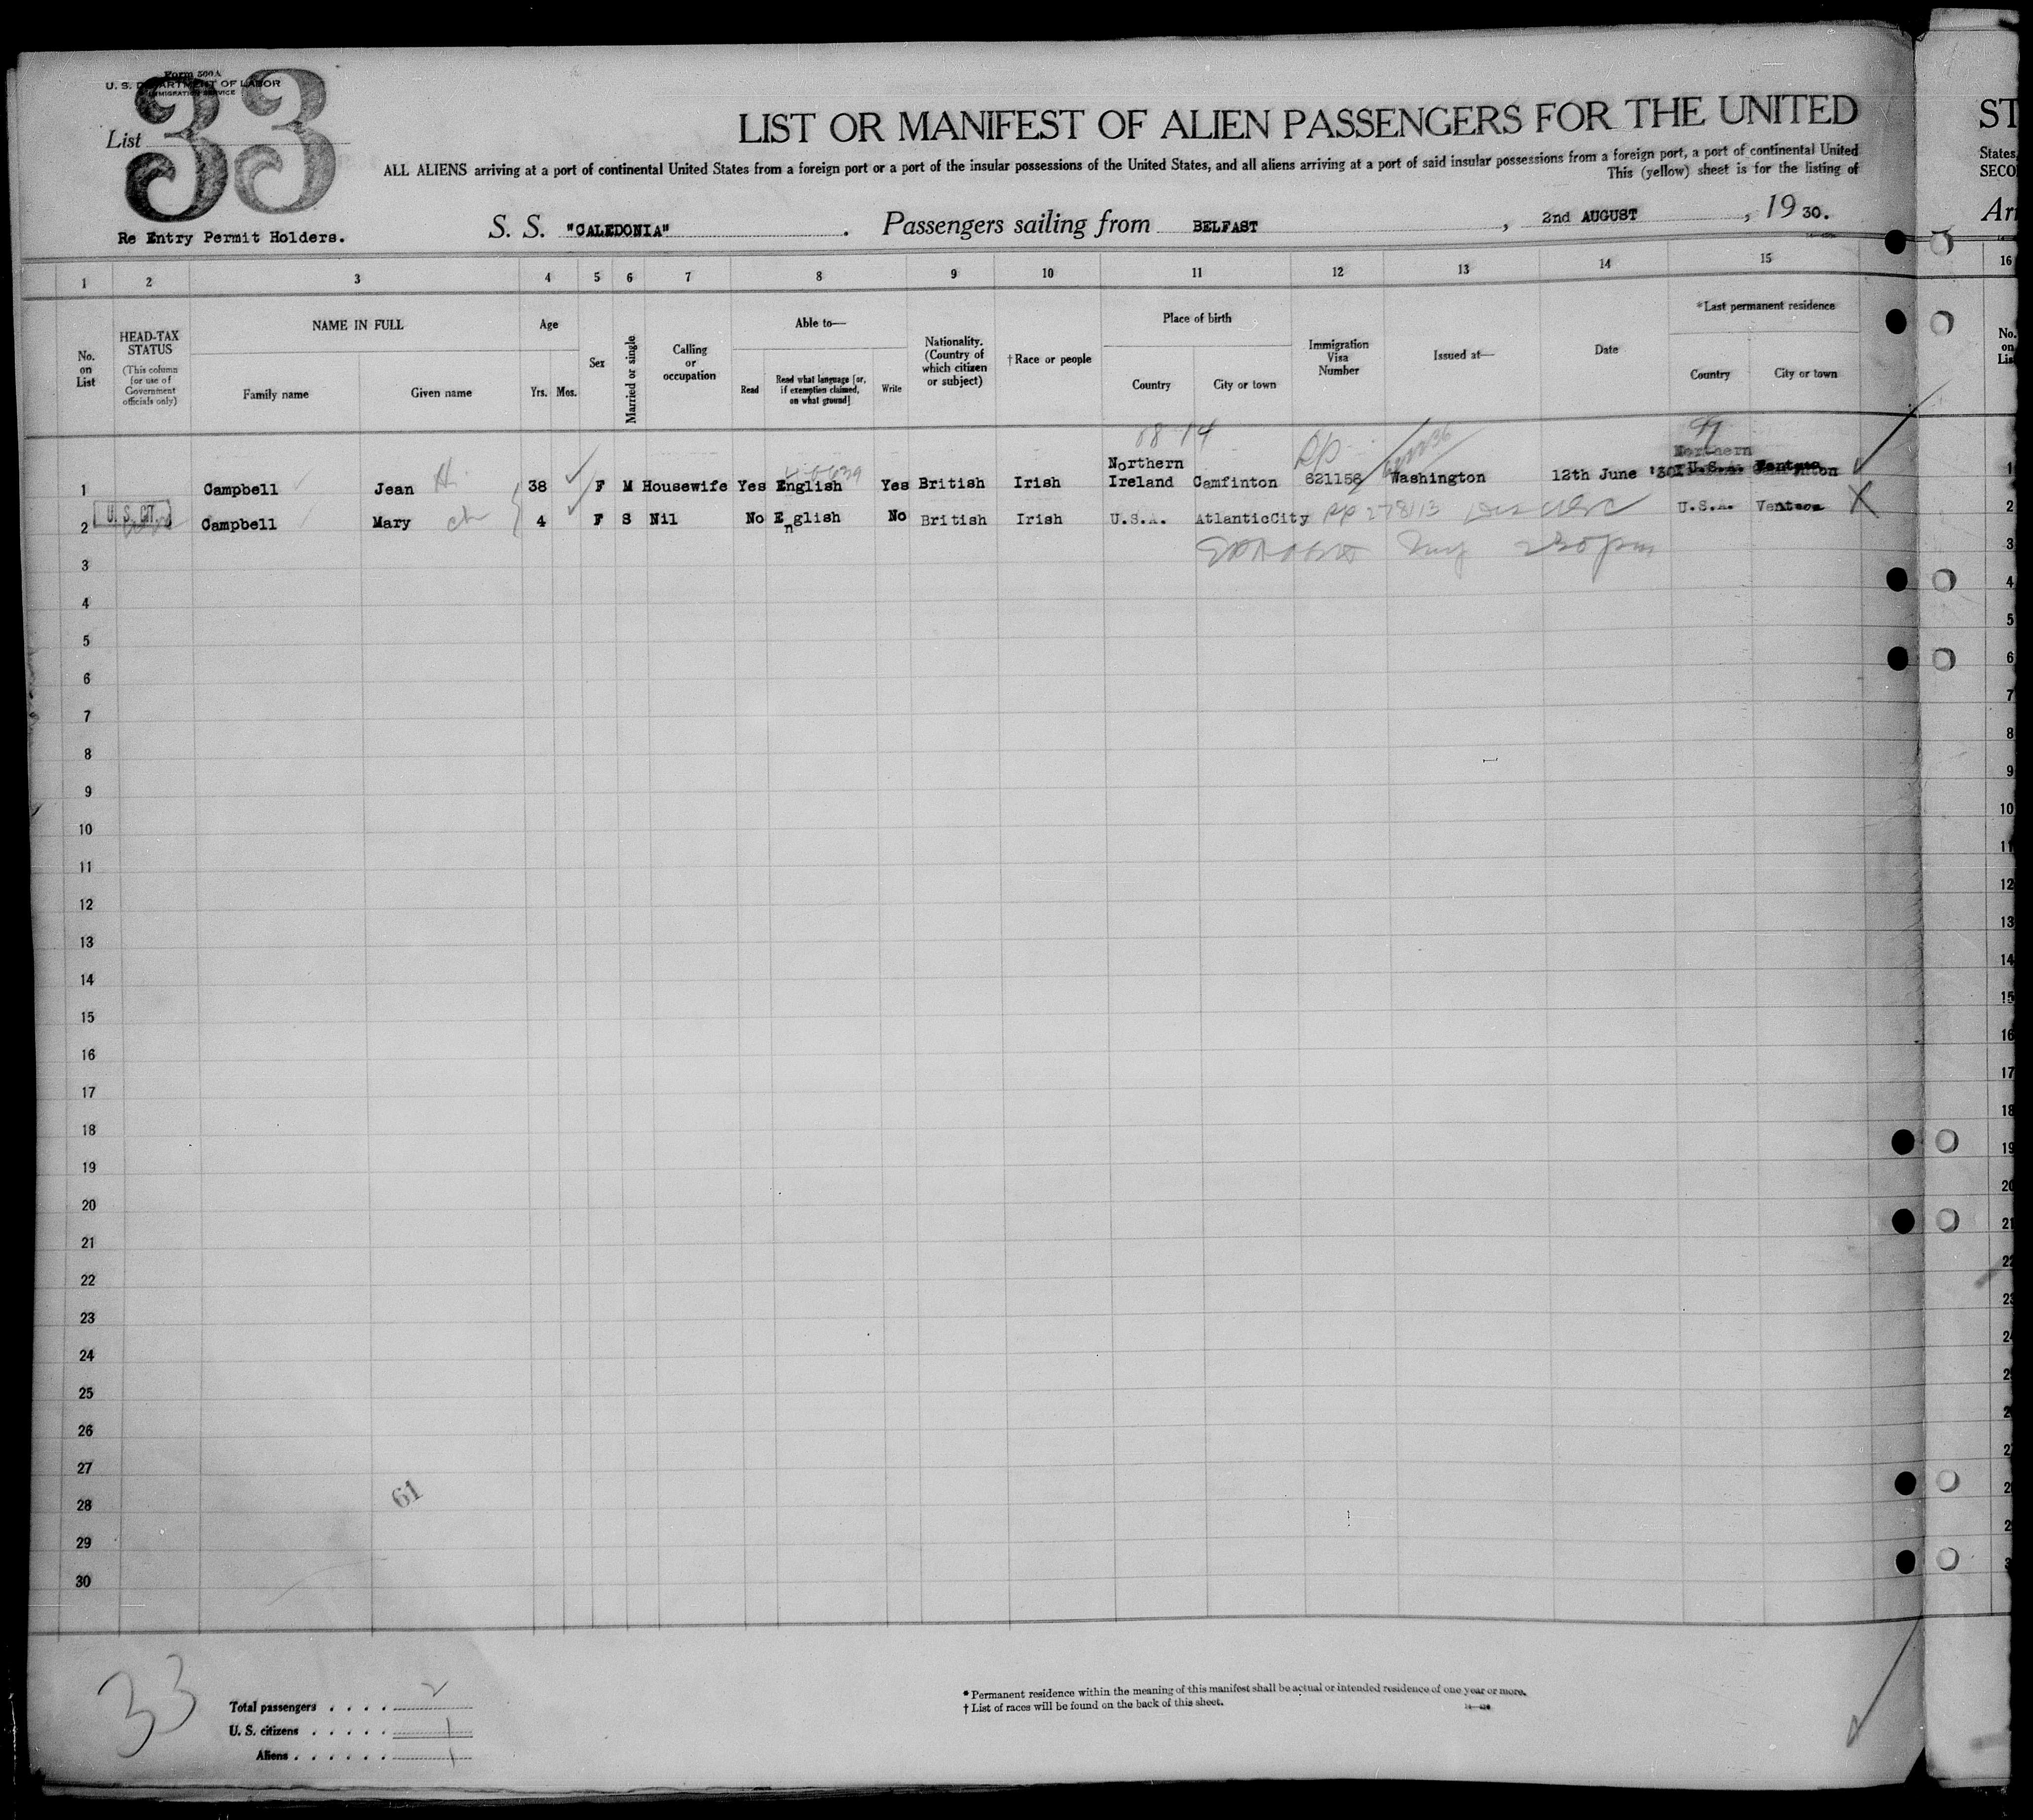 Form 500 A
U. S. DEPARTMENT OF LABOR
IMMIGRATION SERVICE
List 33
LIST OR MANIFEST OF ALIEN PASSENGERS FOR THE UNITED
ST
ALL ALIENS arriving at a port of continental United States from a foreign port or a port of the insular possessions of the United States, and all aliens arriving at a port of said insular possessions from a foreign port, a port of continental United
States,
This (yellow) sheet is for the listing of
SECO
Re Entry Permit Holders.
S. S. "CALEDONIA". Passengers sailing from BELFAST, 2nd AUGUST, 19 30.
Arr
1 2 3 4 5 6 7 8 9 10 11 12 13 14 15
16
No. on List
HEAD-TAX STATUS
(This column for use of Government officials only)
NAME IN FULL
Family name
Given name
Age
Yrs. Mos.
Sex
Married or single
Calling or occupation
Able to—
Read
Read what language [or, if exemption claimed, on what ground]
Write
Nationality. (Country of which citizen or subject)
†Race or people
Place of birth
Country
City or town
Immigration Visa Number
Issued at—
Date
*Last permanent residence
Country
City or town
No. on Lis
1 Campbell Jean H. 38 F M Housewife Yes English Yes British Irish Northern Ireland Camfinton 621156 Washington 12th June '30 U.S.A. 1
U. S. CIT.
2 Campbell Mary ch 4 F S Nil No English No British Irish U.S.A. AtlanticCity 278113 U.S.A. Ventnor X 2
3 3
4 4
5 5
6 6
7 7
8 8
9 9
10 10
11 11
12 12
13 13
14 14
15 15
16 16
17 17
18 18
19 19
20 20
21 21
22 22
23 23
24 24
25 25
26 2
27 27
28 2
29 2
30 3
61
33
Total passengers . . . . 2
U. S. citizens . . . . . 1
Aliens . . . . . . 1
* Permanent residence within the meaning of this manifest shall be actual or intended residence of one year or more.
† List of races will be found on the back of this sheet.